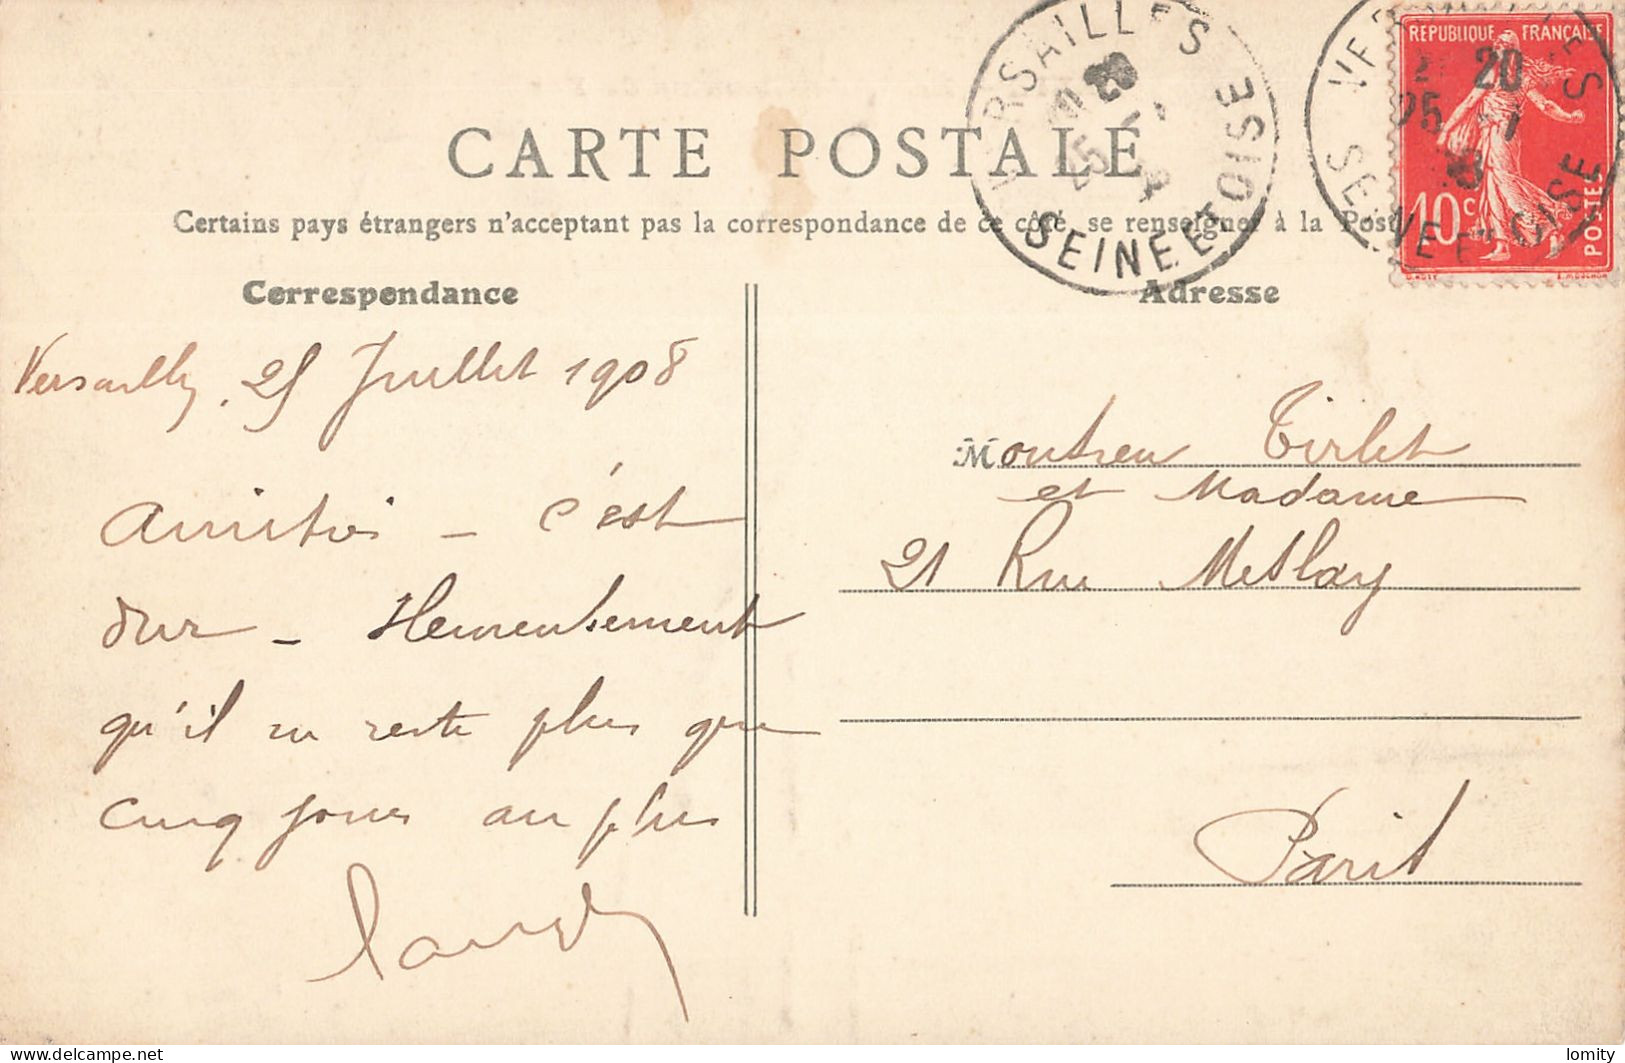 CARTE POSTALE
Certains pays étrangers n'acceptant pas la correspondance de ce côté, se renseigner à la Post
Correspondance
Adresse
Versailles, 25 Juillet 1908
Amitiés - c'est
dur - Heureusement
qu'il ne reste plus que
cinq jours au plus
Monsieur Tirlet
et Madame
21 Rue Meslay
Paris
VERSAILLES
20
25
SEINE ET OISE
REPUBLIQUE FRANÇAISE
20
25
10c
POSTES
SEINE ET OISE
O. ROTY
L. MOUCHON
delcampe.net
lomity